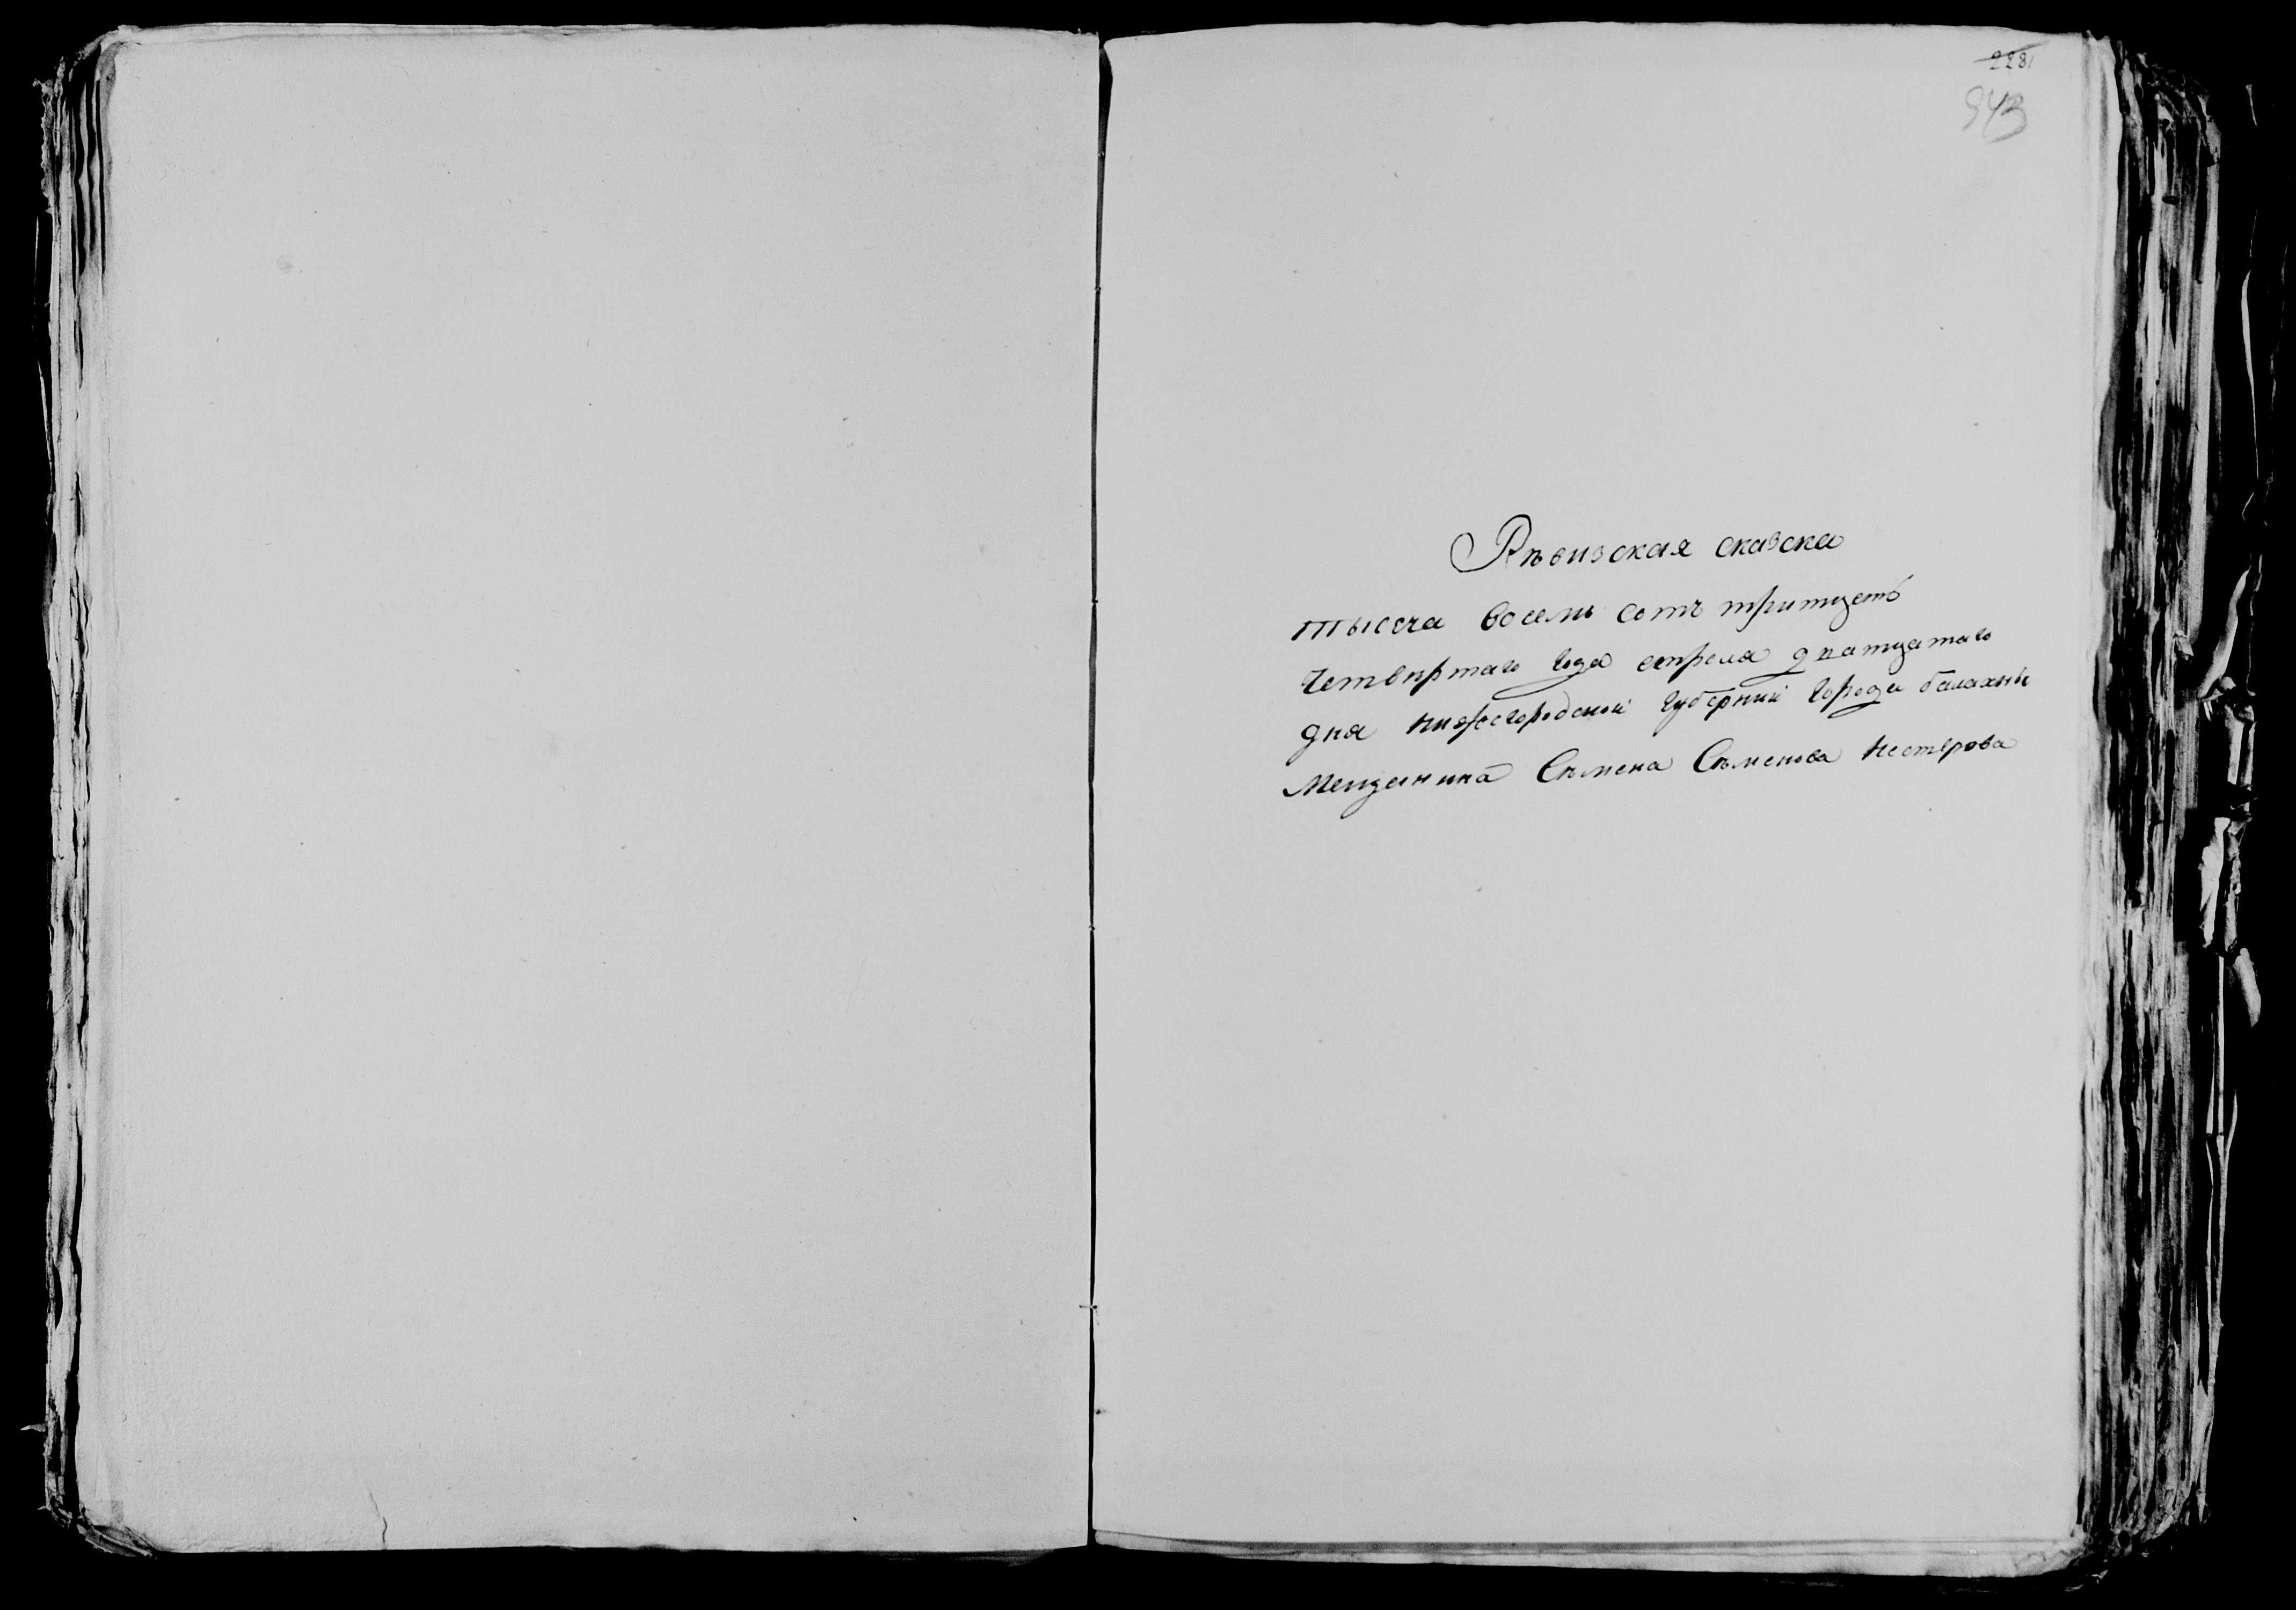 228
543
Рѣвизская сказска
тысеча восемь сотъ тритцеть
Четвѣртаго года апреля дватцатаго
дня нижегородской губернии города балахны
Мещанина Сѣмена Сѣменова нестерова